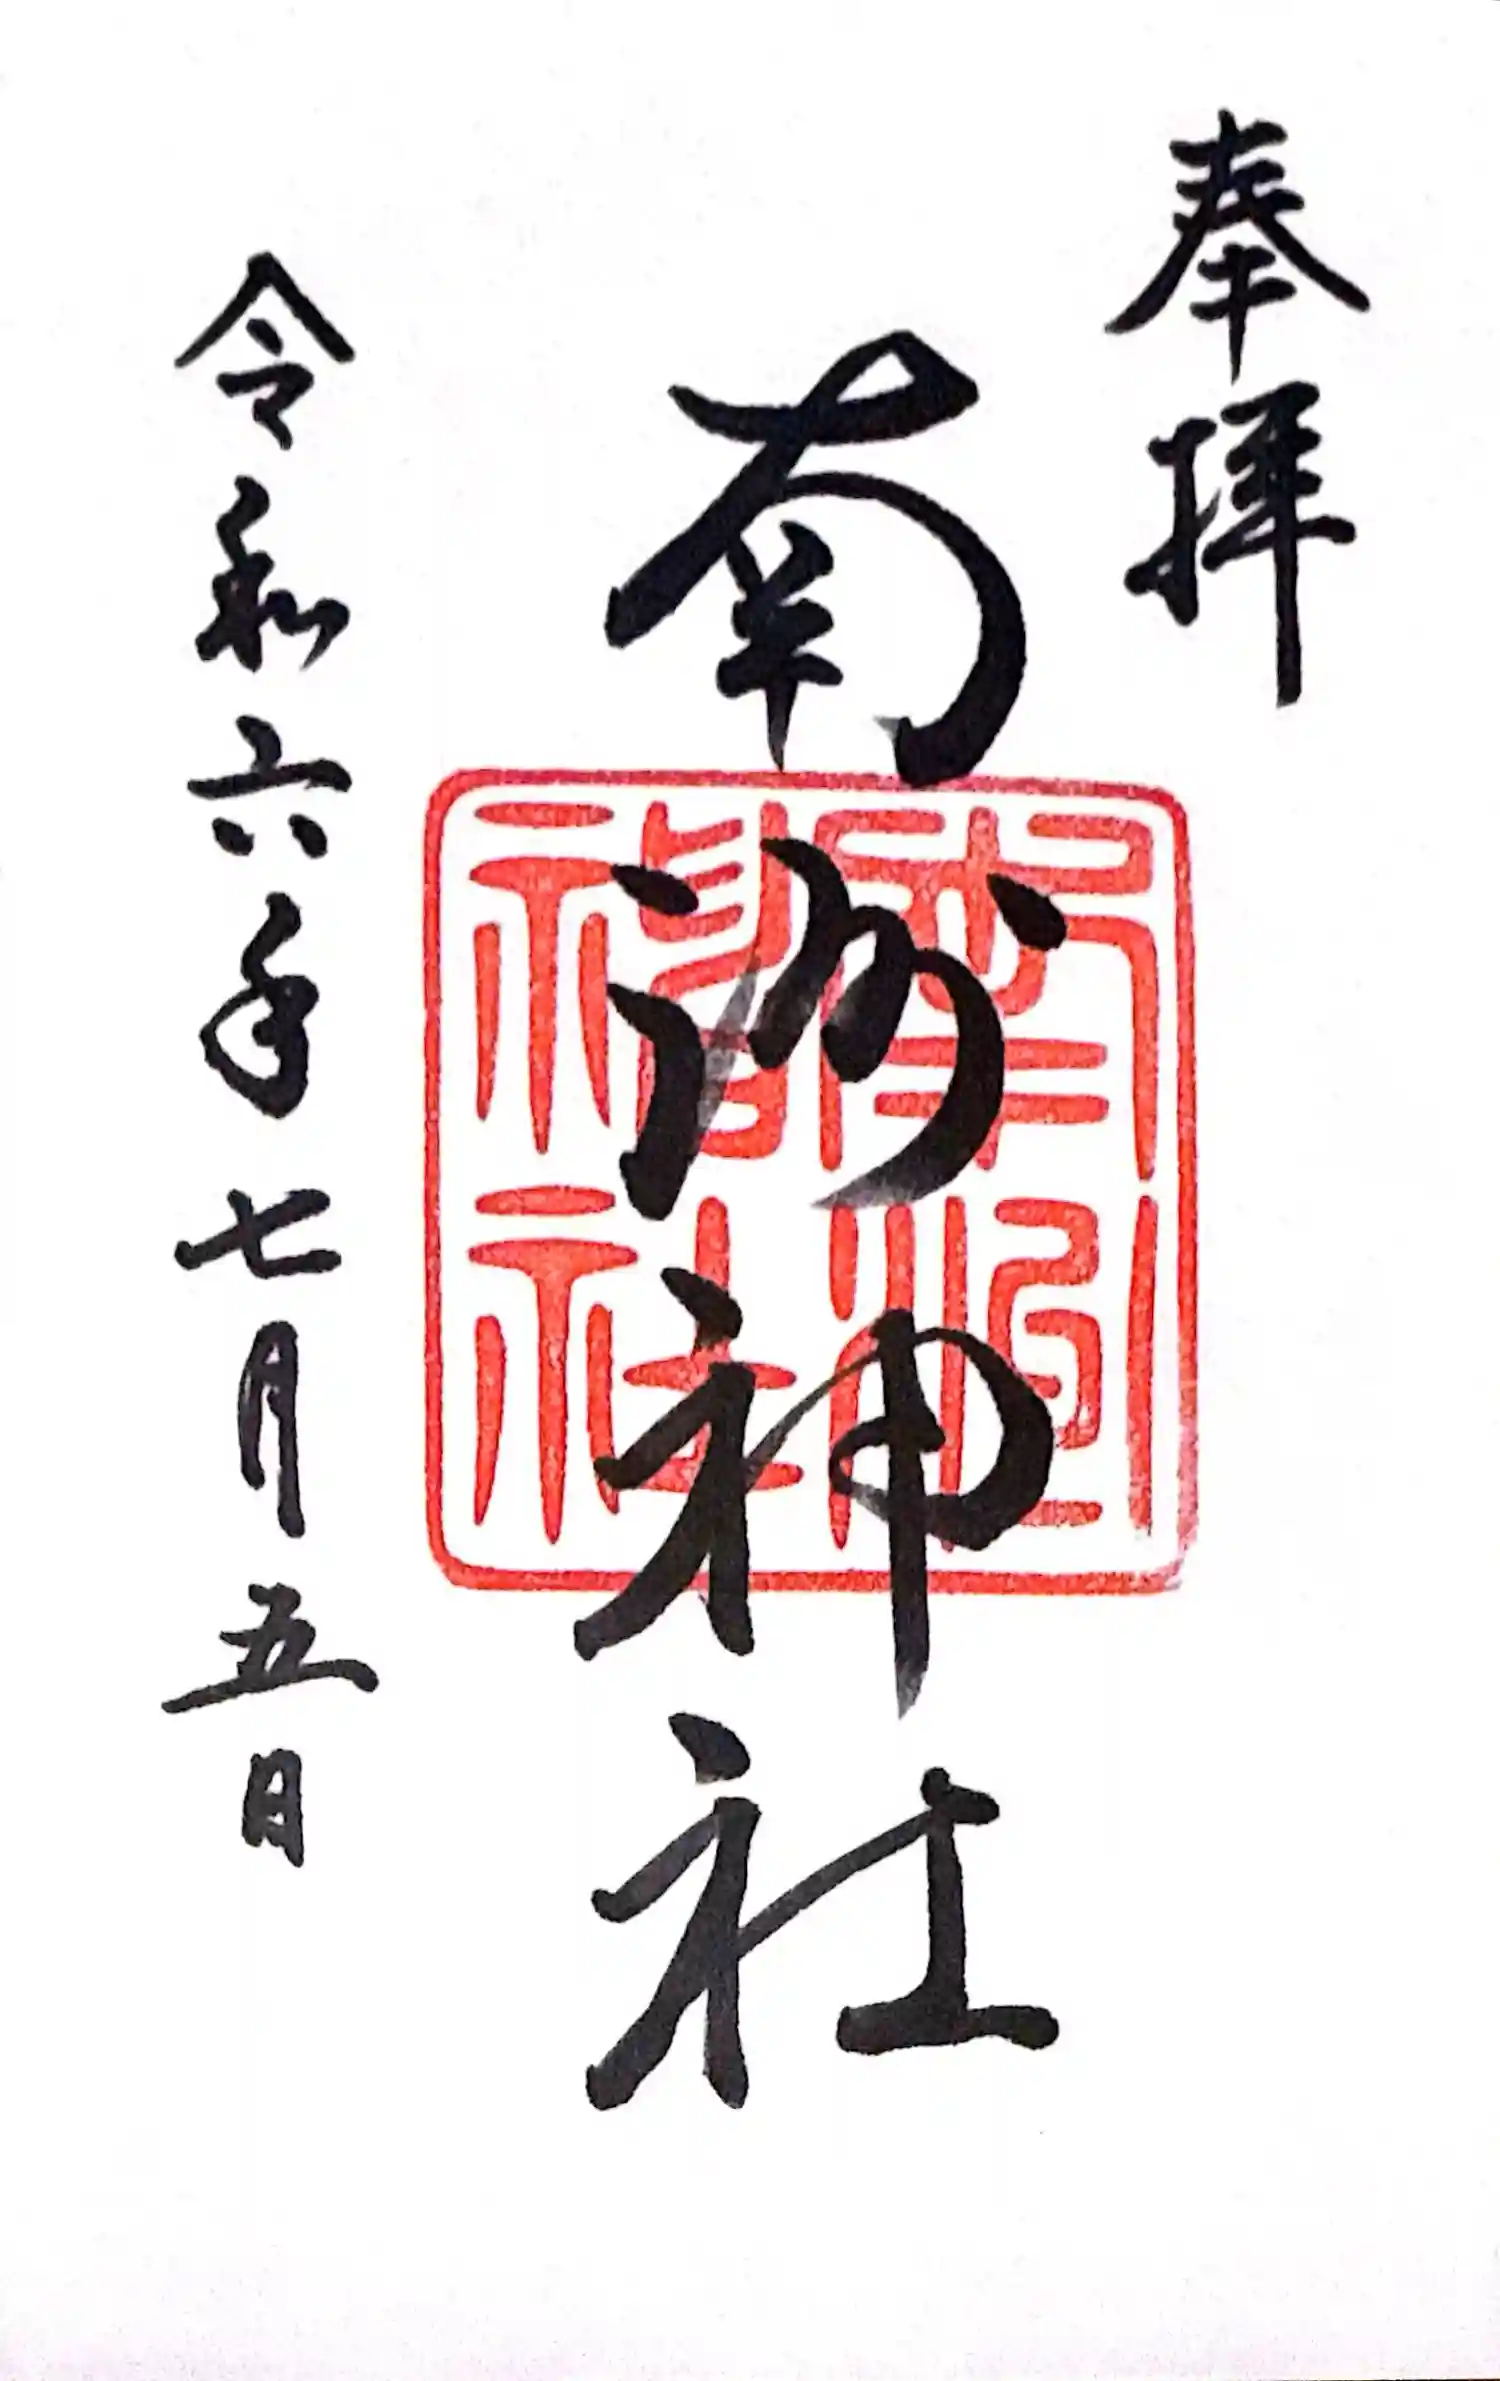 奉拝
南洲神社
令和六年七月五日
南洲神社